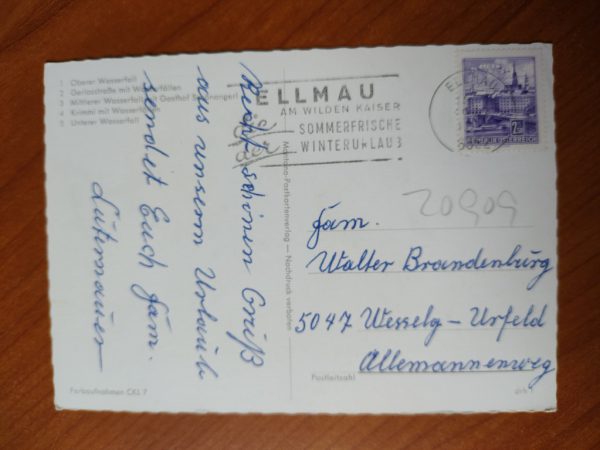 1 Oberer Wasserfall
2 Gerlosstraße mit Wasserfällen
3 Mittlerer Wasserfall mit Gasthof Schönangerl
4 Krimml mit Wasserfällen
5 Unterer Wasserfall
ELLMAU
AM WILDEN KAISER
SOMMERFRISCHE
WINTERURLAUB
2
REPUBLIK ÖSTERREICH
Recht schönen Gruß
aus unserm Urlaub
sendet Euch Fam.
20909
Fam.
Walter Brandenburg
5047 Wesselg - Urfeld
Allemannenweg
Postkartenverlag — Nachdruck verboten
Postleitzahl
Farbaufnahmen CKL 7